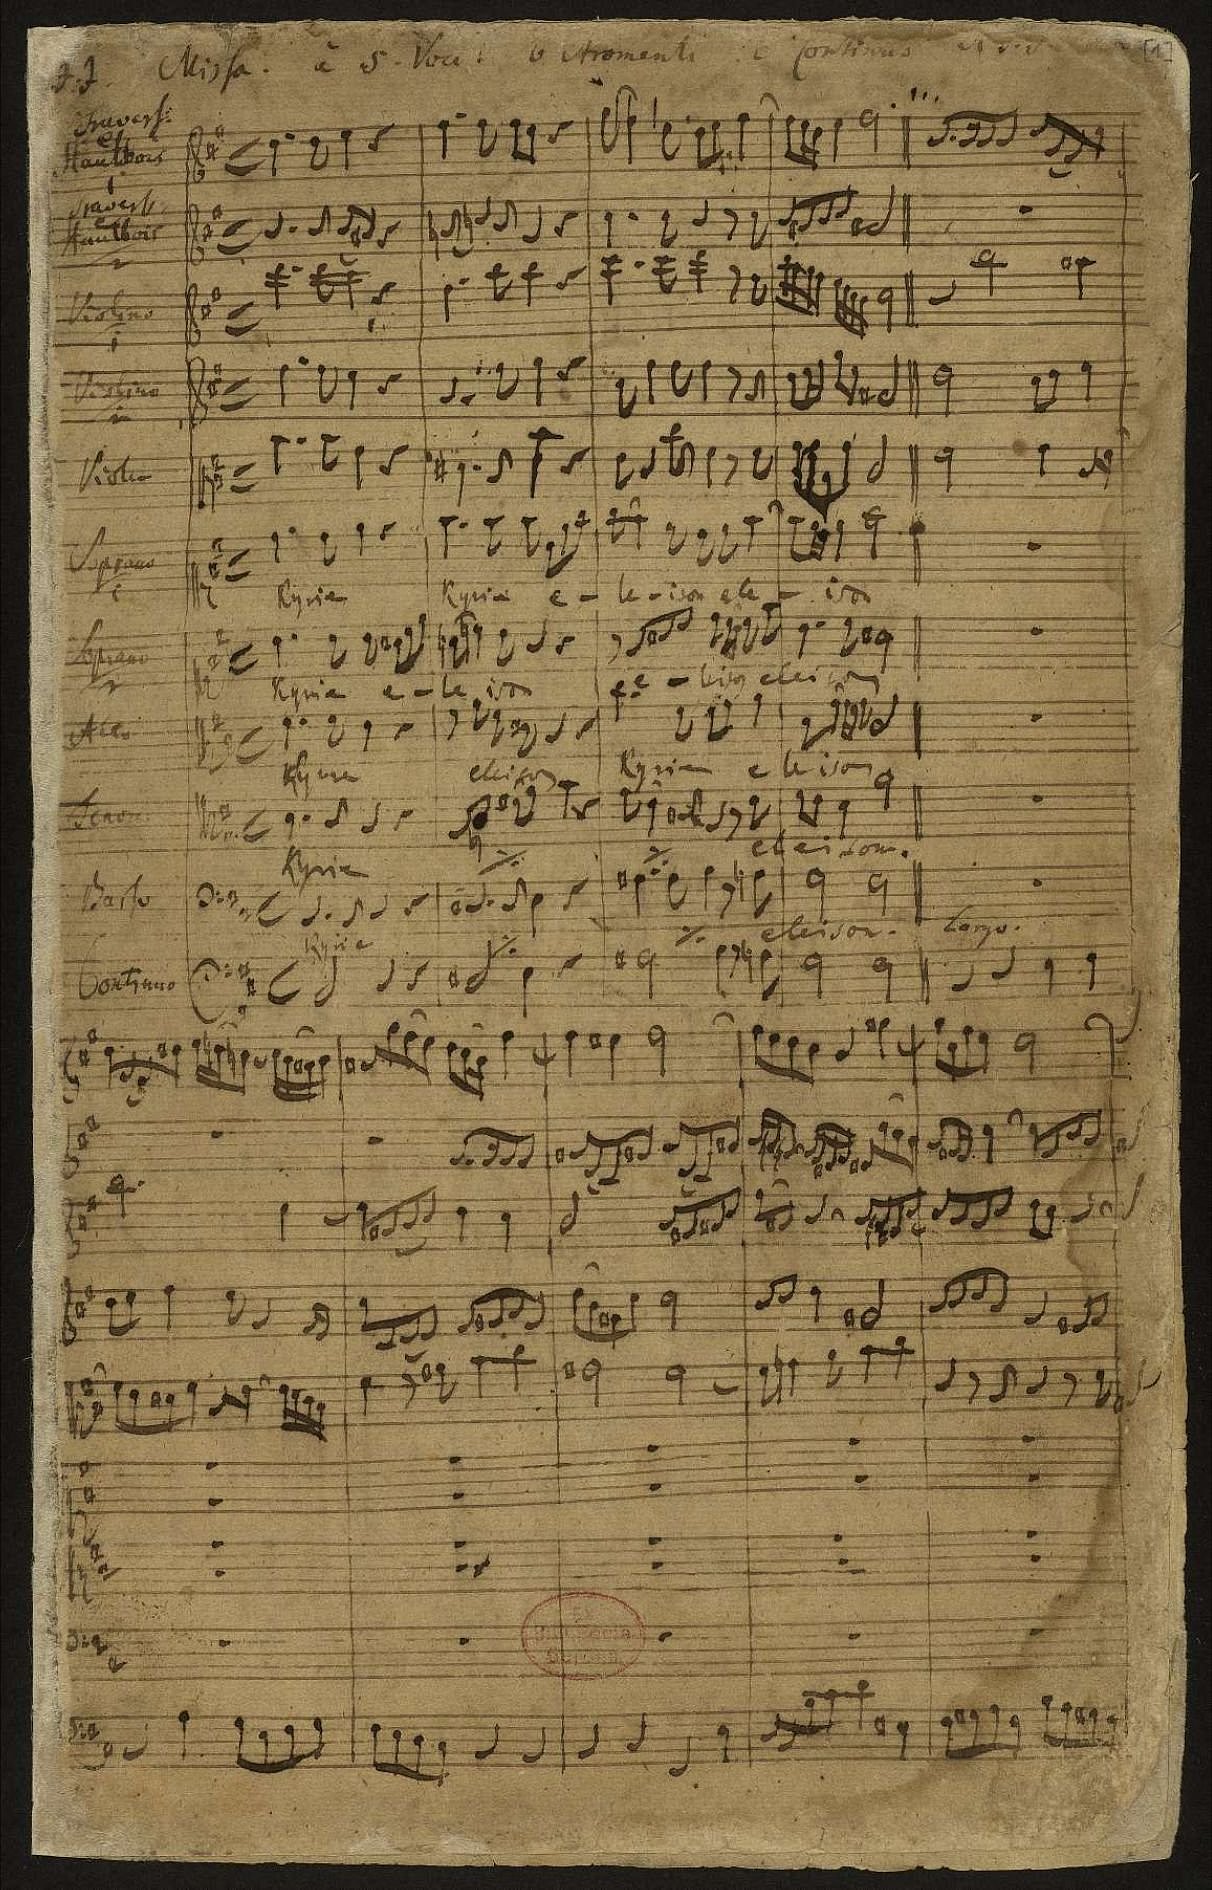 J.J. Missa. à 5. Voci. 6 stromenti e continuo [1]
Travers:
et
Hautbois
1
Travers.
e
Hautbois
2
Violino
1
Violino
2
Viola
Soprano
1
Kyrie Kyrie e - le - ison ele - ison
Soprano
2
Kyrie e - le ison e - leison eleison
Alto
Kyrie eleison Kyrie eleison
Tenor
Kyrie eleison.
Basso
Kyrie eleison. Largo.
Continuo